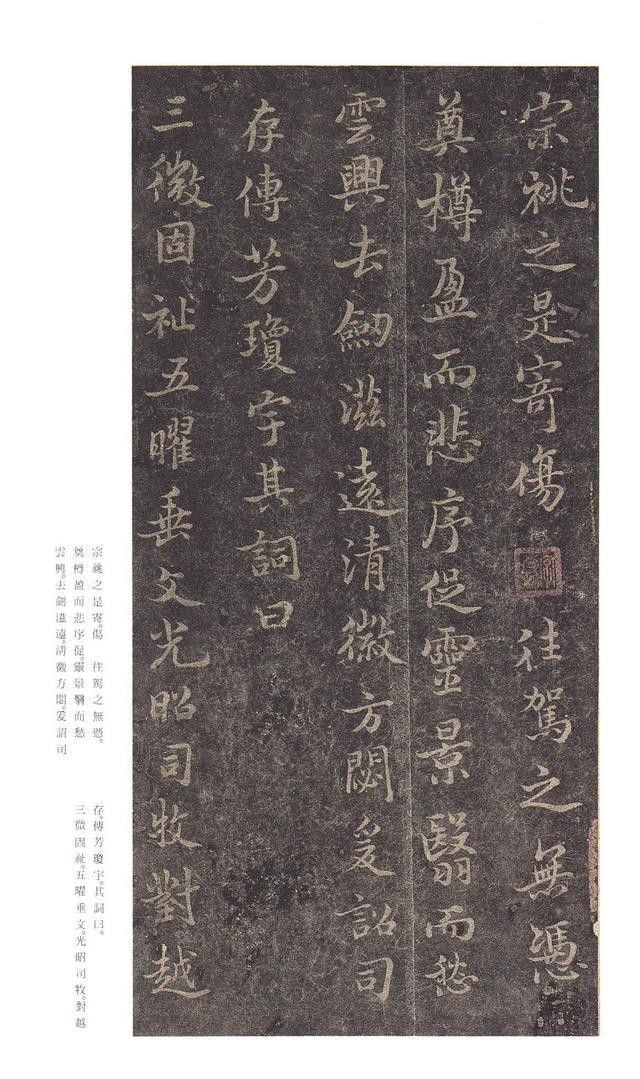 宗祧之是寄傷 往駕之無憑
奠樽盈而悲序促靈景翳而愁
雲興去劒滋遠清徽方閟爰詔司
存傳芳瓊字其詞曰
三微固祉五曜垂文光昭司牧對越
宗祧之是寄。傷 往駕之無憑。
奠樽盈而悲序促。靈景翳而愁
雲興。去劒滋遠。清徽方閟。爰詔司
存。傳芳瓊字。其詞曰。
三微固祉。五曜垂文。光昭司牧。對越